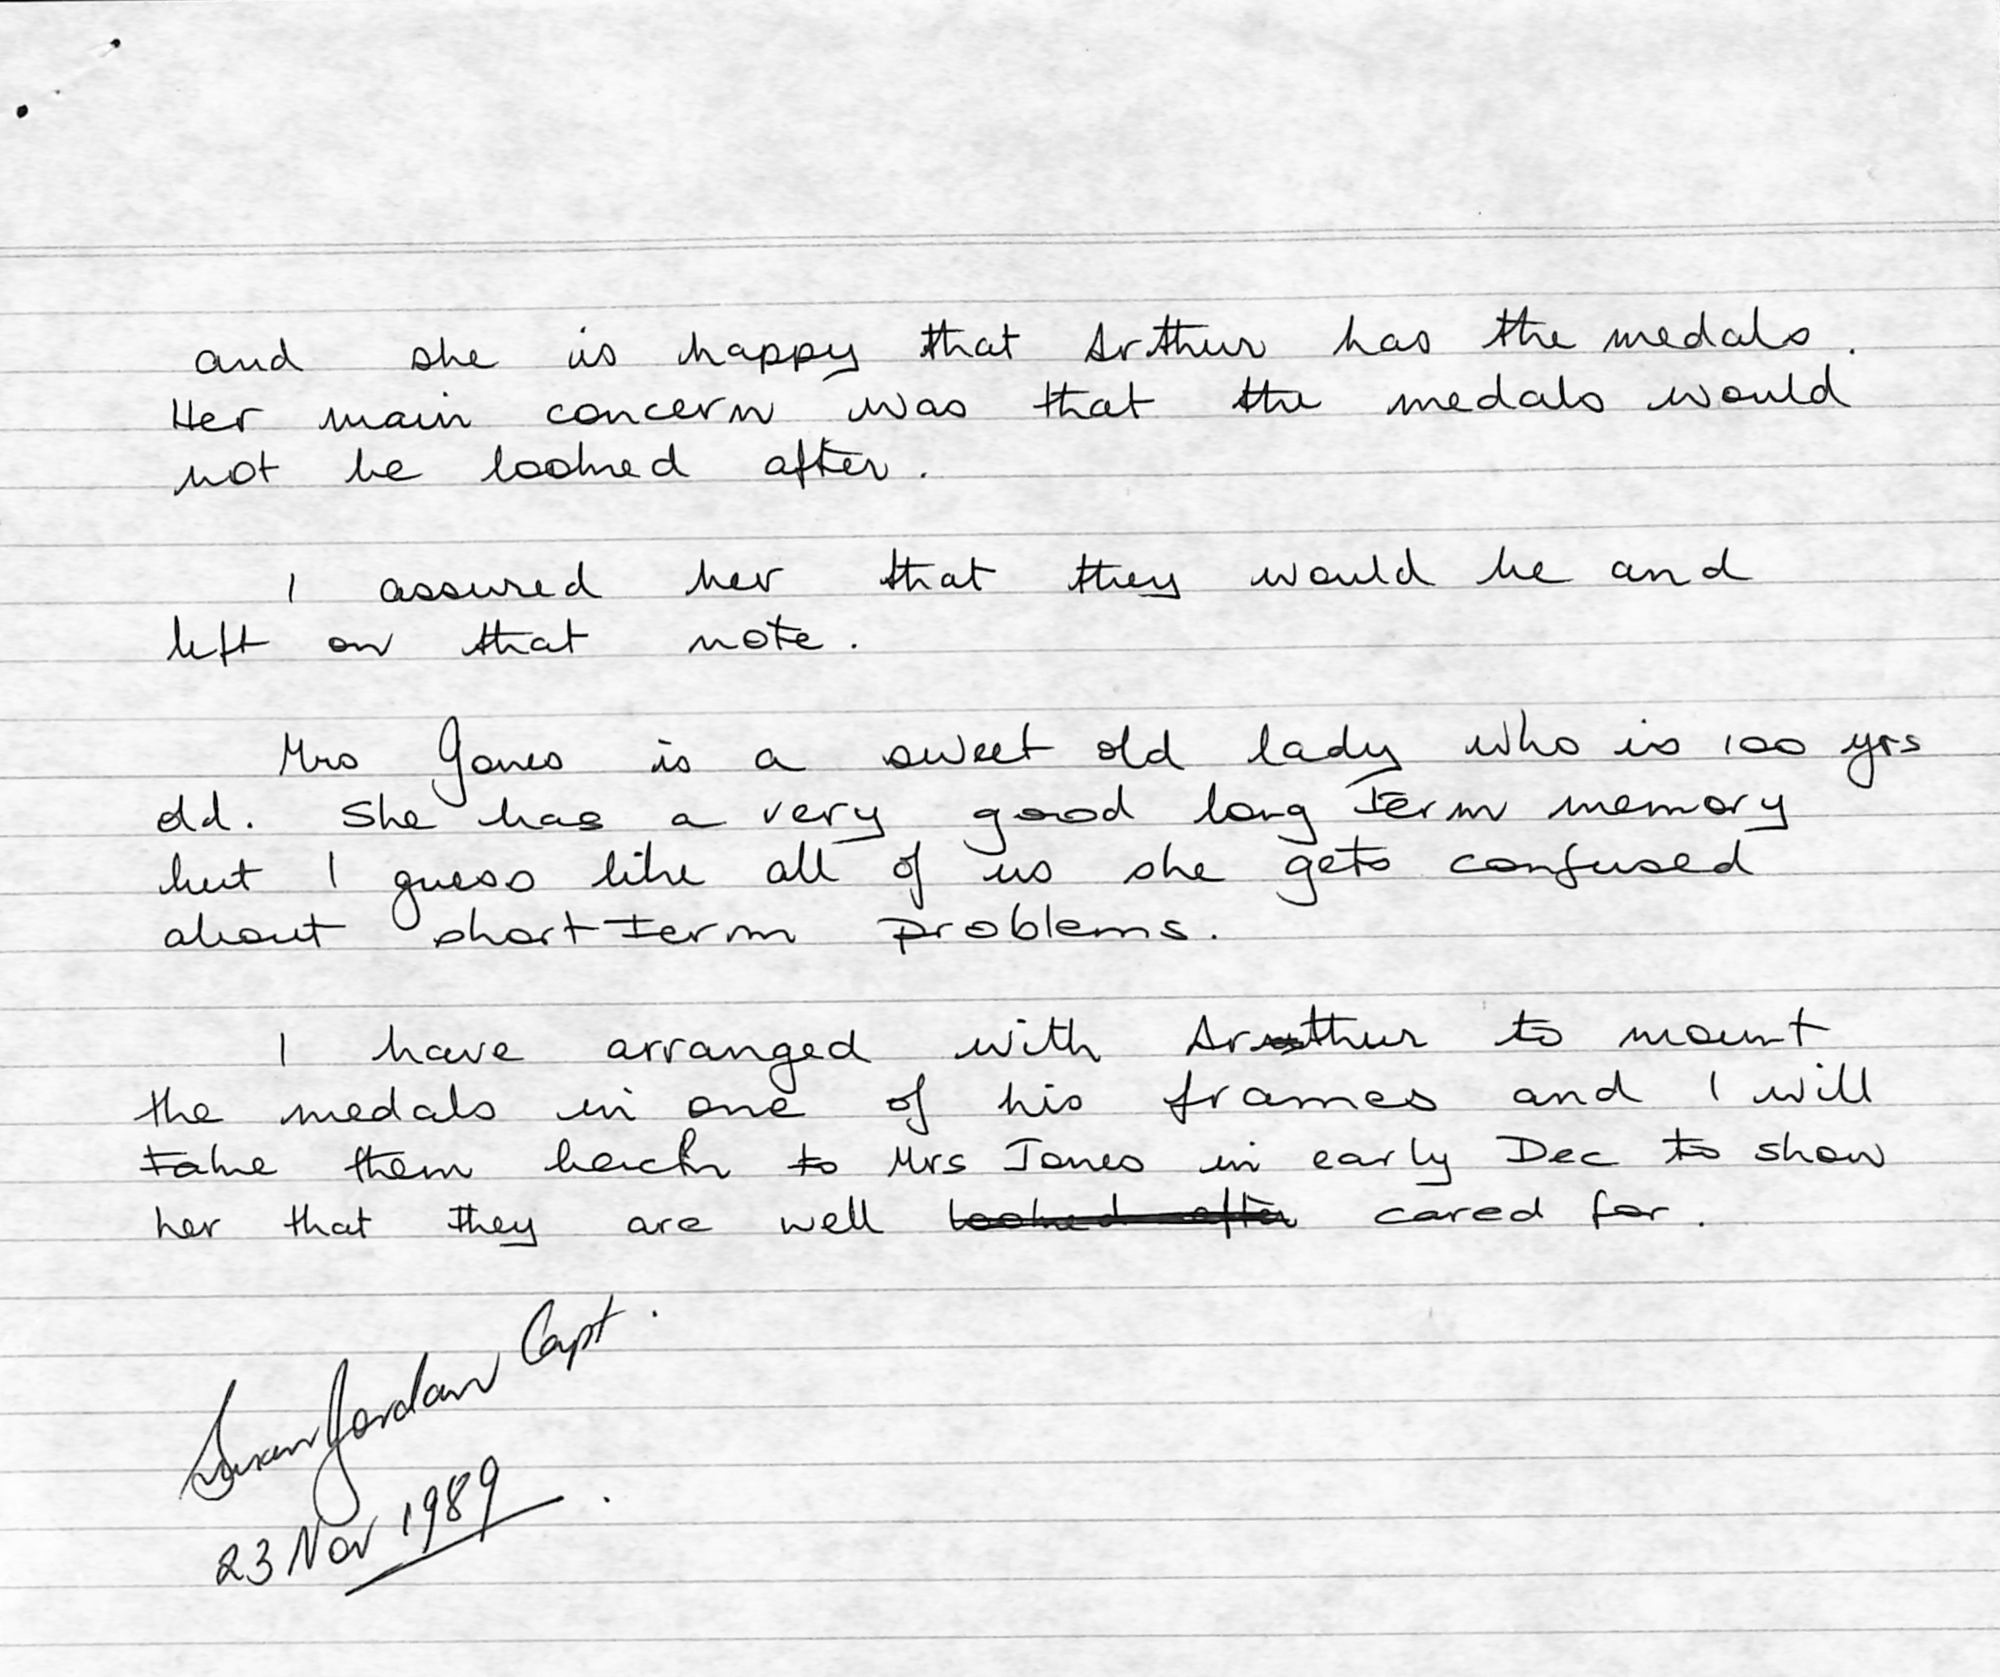 and she is happy that Arthur has the medals.
Her main concern was that the medals would
not be looked after.
I assured her that they would be and
left on that note.
Mrs Jones is a sweet old lady who is 100 yrs
old. She has a very good long term memory
but I guess like all of us she gets confused
about short term problems.
I have arranged with Arthur to mount
the medals in one of his frames and I will
take them back to Mrs Jones in early Dec to show
her that they are well looked after cared for.
Susan Jordan Capt.
23 Nov 1989.